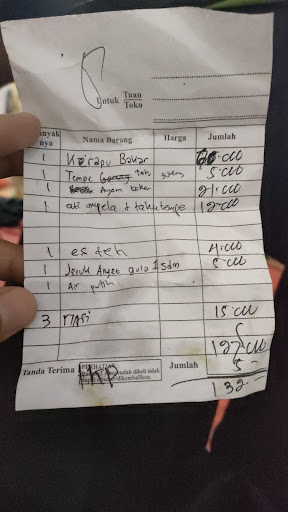 Untuk Tuan
Toko
anyak nya Nama Barang Harga Jumlah
1 Kerapu Bakar .000
1 Tempe tahu goreng 5.000
1 Ayam bakar 21.000
1 ati ampela + tahu tempe 12.000
1 es teh 4.000
1 Jeruk Anget gula 1 sdm 5.000
1 Air putih
3 nasi 15.000
127.000
5
Tanda Terima PERHATIAN Jumlah 132
sudah dibeli tidak
dikembalikan.